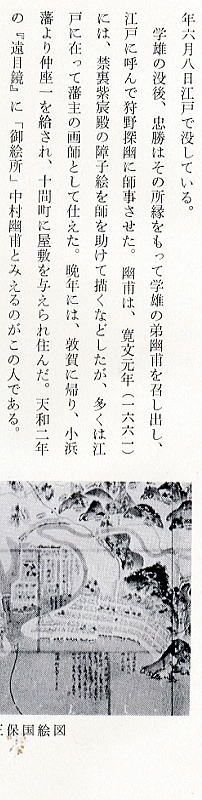 年六月八日江戸で没している。
学雄の没後、忠勝はその所縁をもって学雄の弟幽甫を召し出し、
江戸に呼んで狩野探幽に師事させた。幽甫は、寛文元年(一六六一)
には、禁裏紫宸殿の障子絵を師を助けて描くなどしたが、多くは江
戸に在って藩主の画師として仕えた。晩年には、敦賀に帰り、小浜
藩より仲座一を給され、十間町に屋敷を与えられ住んだ。天和二年
の『遠目鏡』に「御絵所」中村幽甫とみえるのがこの人である。
保国絵図